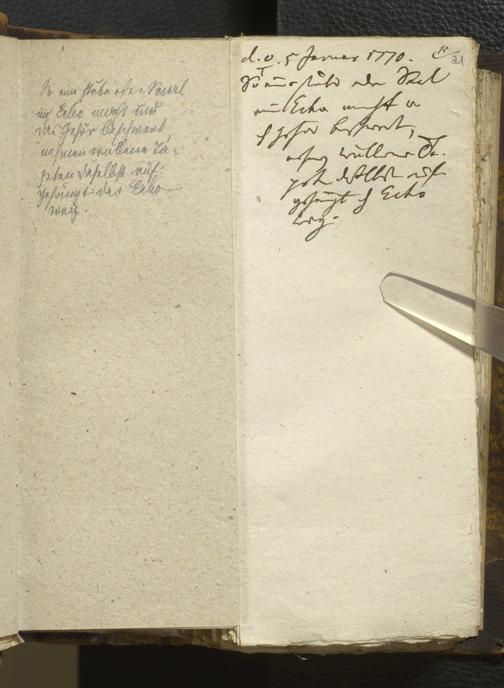 So eine stube oder Saal
ein Echo macht und
das Gehör beschwert,
nehmen wollene Ta-
peten daselbst auf-
gehängt das Echo
weg.
d. v. 5 Januar 1770.
10
31
So eine stube oder Saal
ein Echo macht u
Gehör beschwert,
nehmen wollene Ta-
peten daselbst auf-
gehängt Echo
weg.